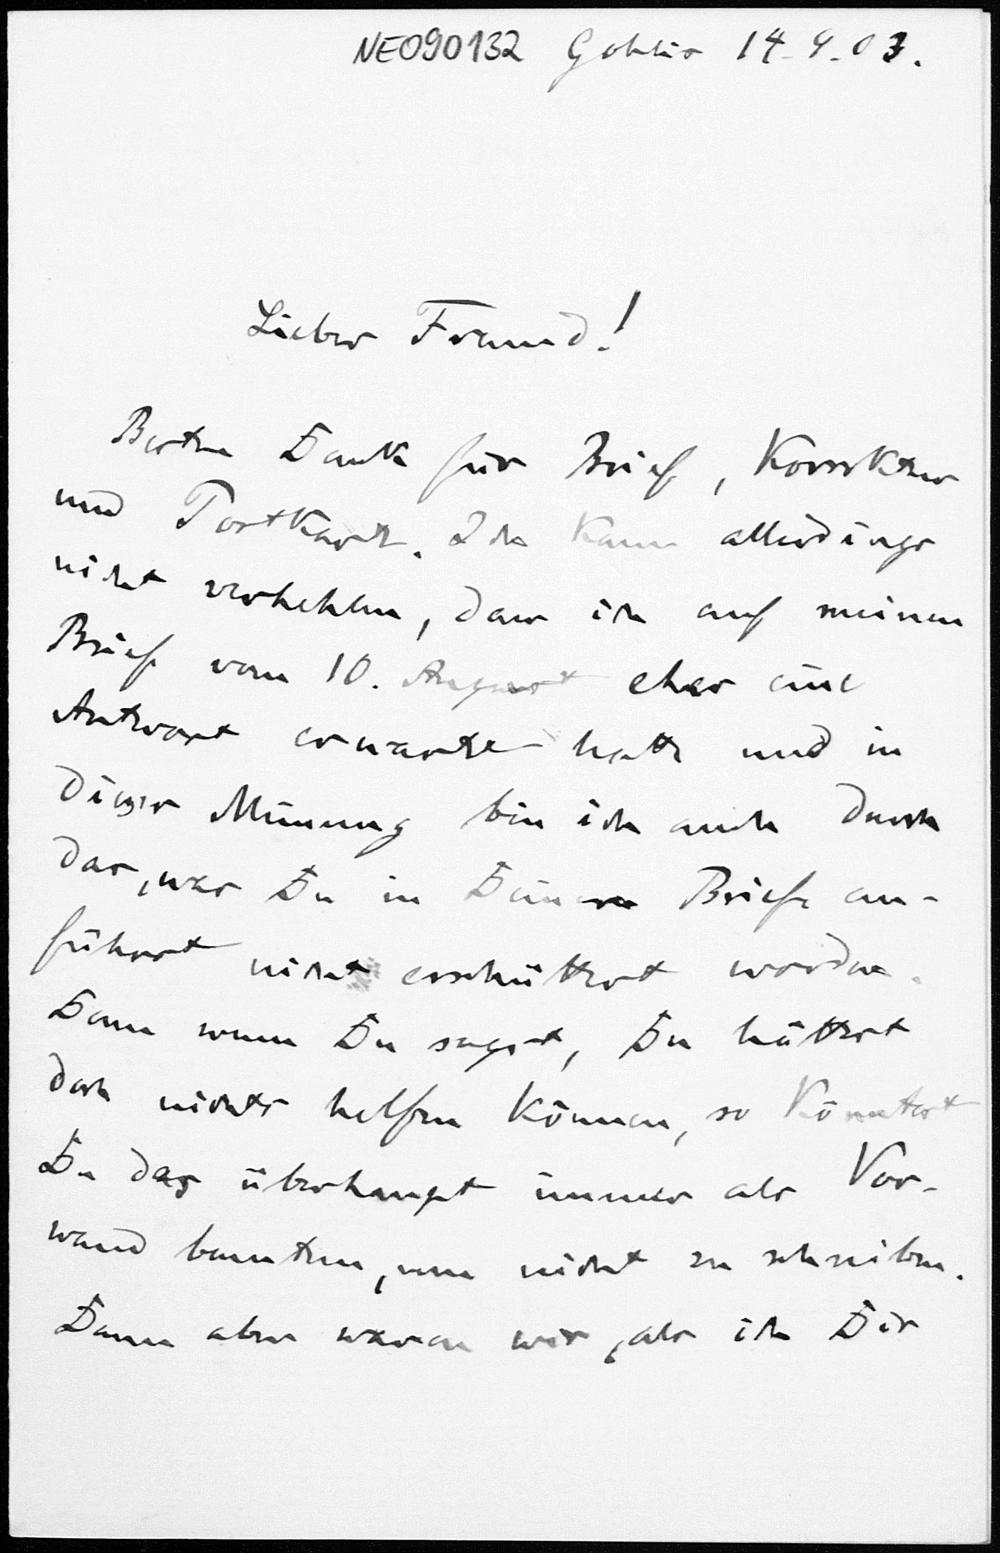 NE090132 Gohlis 14.9.03.
Lieber Freund!
Besten Dank für Brief, Korrektur
und Postkarte. Ich kann allerdings
nicht verhehlen, dass ich auf meinen
Brief vom 10. August eher eine
Antwort erwartet hatte und in
dieser Meinung bin ich auch durch
das, was Du in Deinem Briefe an-
führst nicht erschüttert worden.
Denn wenn Du sagst, Du hättest
doch nichts helfen können, so könntest
Du das überhaupt immer als Vor-
wand benutzen, um nicht zu schreiben.
Dann aber waren wir, als ich Dir